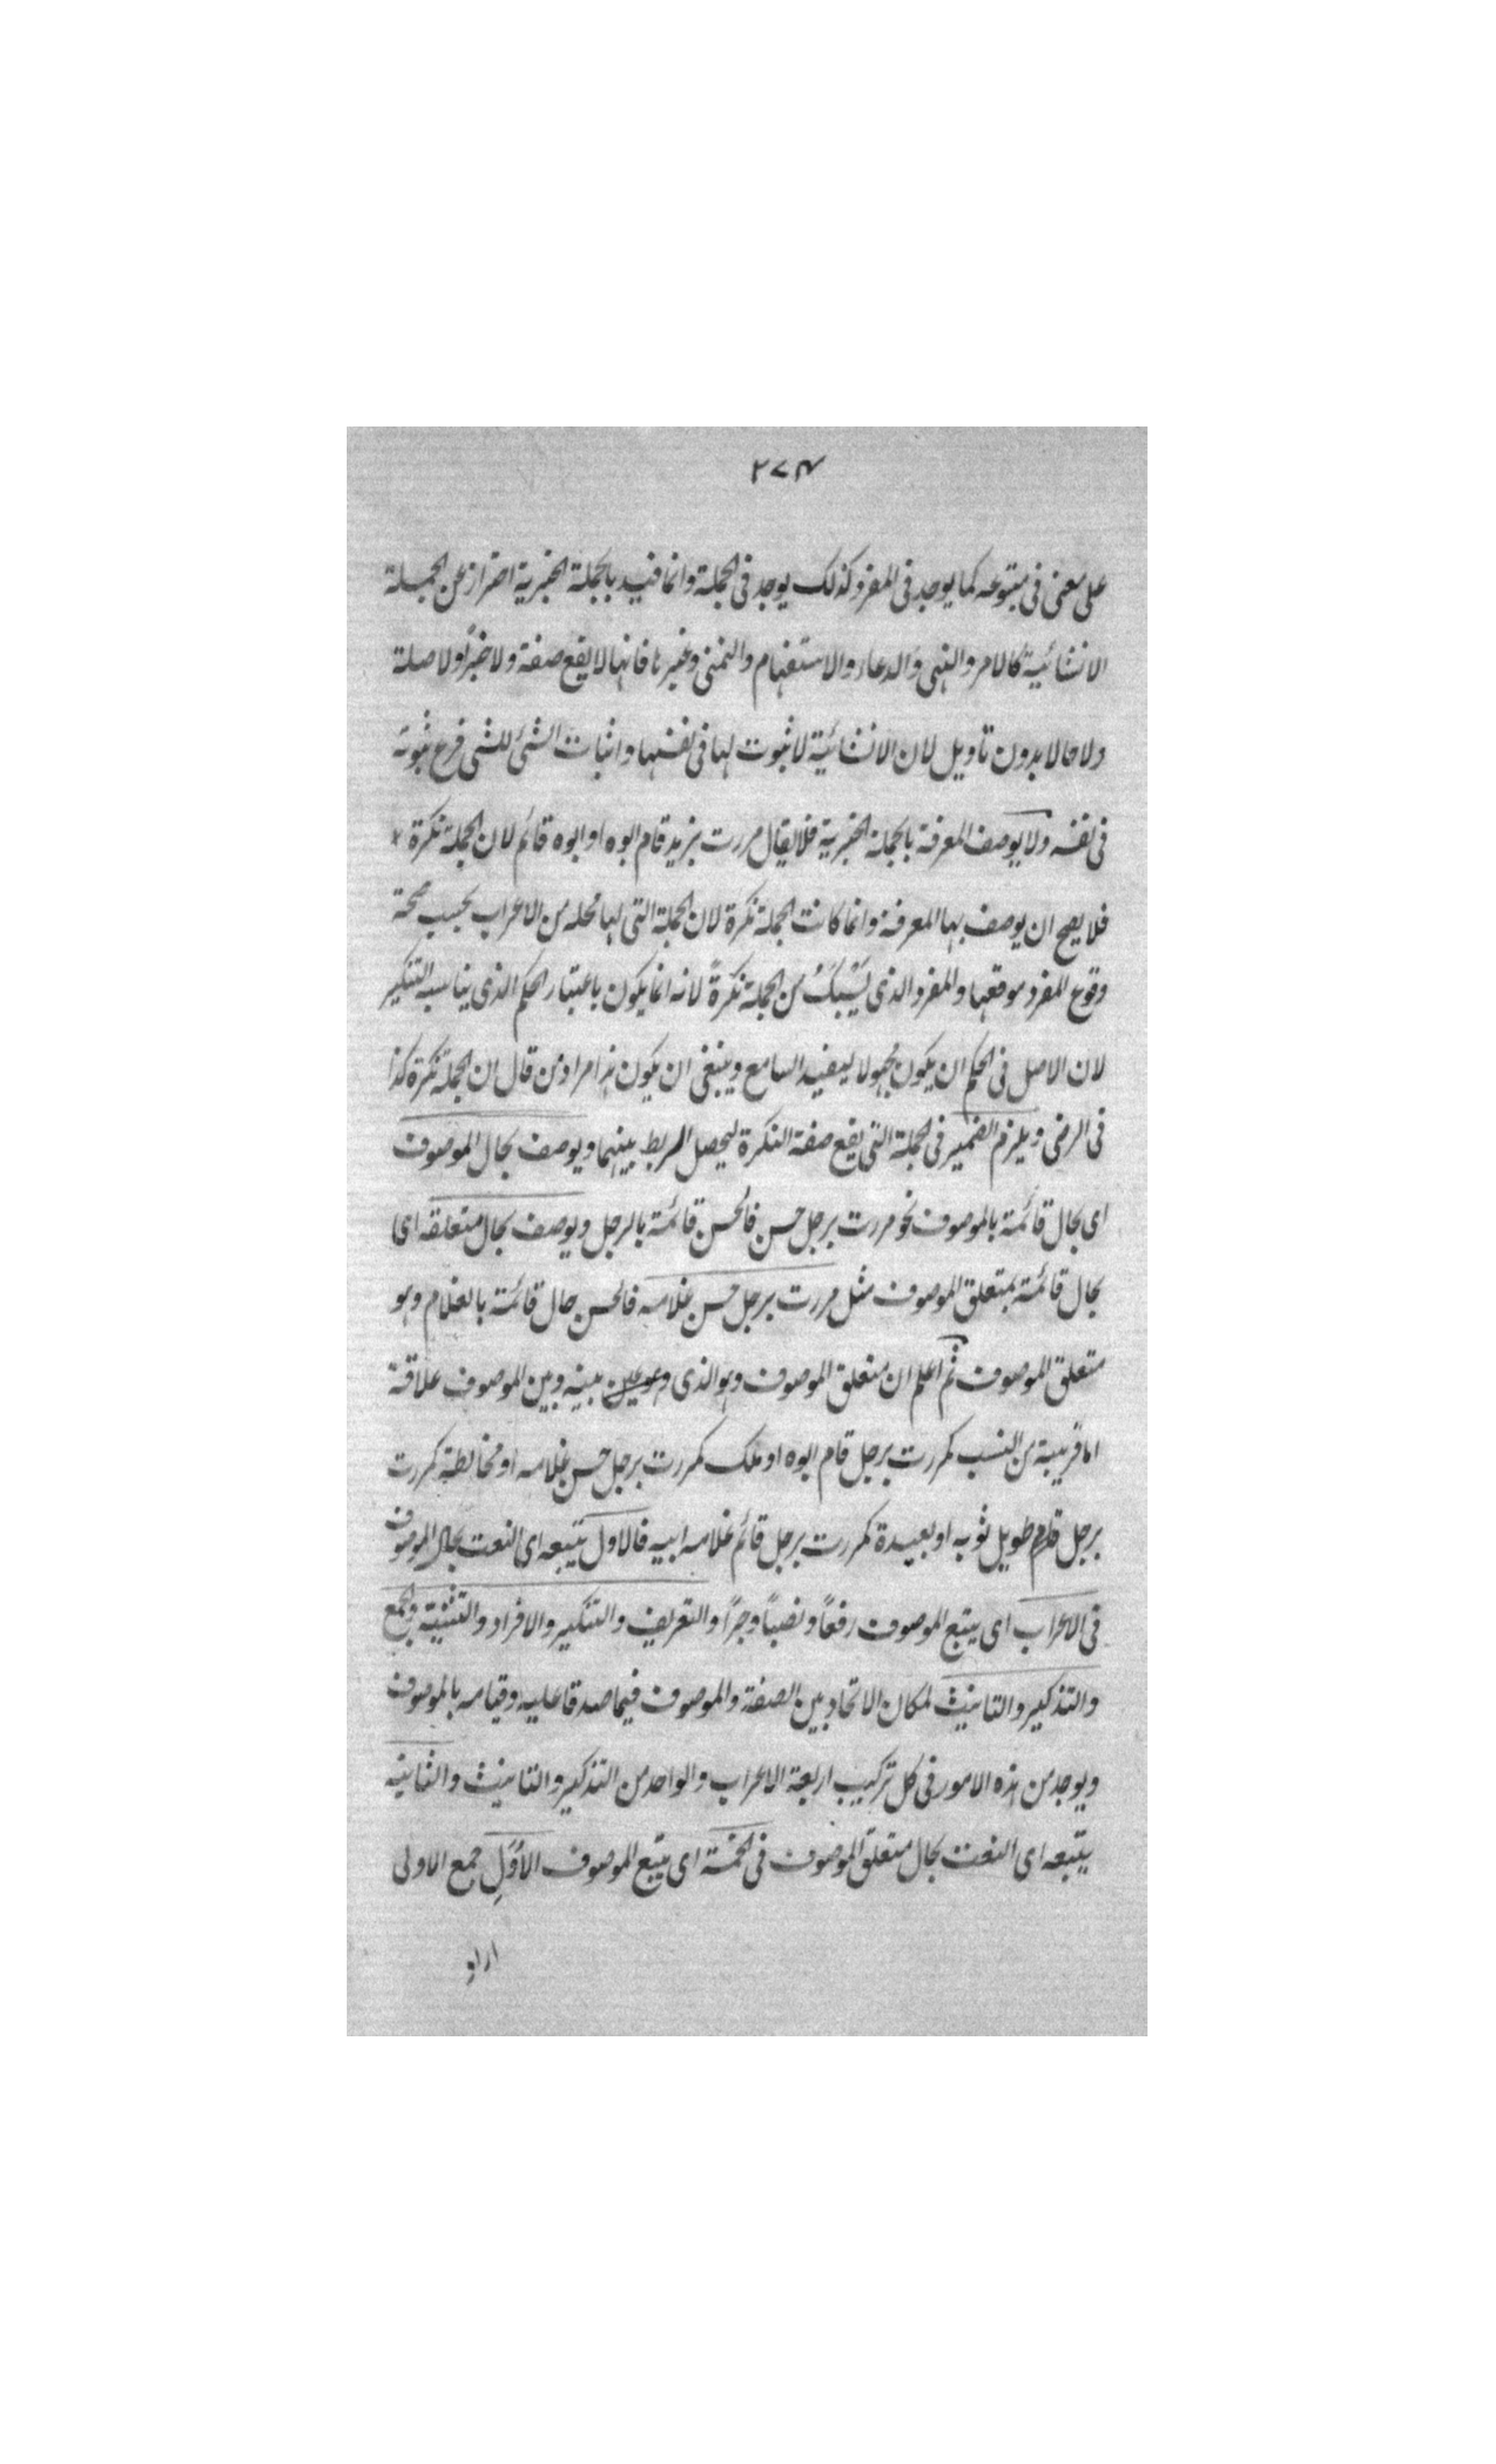 ٢٧٤
على معنى فى متبوعه كما يوجد فى المفرد كذلك يوجد فى الجملة وانما قيد بالجملة الخبرية احتراز عن الجملة
الانشائية كالامر والنهى والدعاء والاستفهام والتمنى وغيرها فانها لا يقع صفة ولا خبرًا ولا صلة
ولا حالا بدون تأويل لان الانشائية لا ثبوت لها فى نفسها واثبات الشئ للشى فرع ثبوته
فى نفسه ولا يوصف المعرفة بالجملة الخبرية فلا يقال مررت بزيد قام ابوه او ابوه قائم لان الجملة نكرة
فلا يصح ان يوصف بها المعرفة وانما كانت الجملة نكرة لان الجملة التى لها محله من الاعراب يجب صحة
وقوع المفرد موقعها والمفرد الذى يُسْبَكُ من الجملة نكرةً لانه انما يكون باعتبار الحكم الذى يناسبه التنكير
لان الاصل فى الحكم ان يكون مجهولا ليفيد السامع وينبغى ان يكون هذا مراد من قال ان الجملة نكرة كذا
فى الرضى ويلزم الضمير فى الجملة التى يقع صفة النكرة ليحصل الربط بينهما ويوصف بحال الموصوف
اى بحال قائمة بالموصوف نحو مررت برجل حسن فالحسن قائمة بالرجل ويوصف بحال متعلقه اى
بحال قائمة بمتعلق الموصوف مثل مررت برجل حسن غلامه فالحسن حال قائمة بالغلام وهو
متعلق الموصوف ثم اعلم ان متعلق الموصوف وهو الذى بينه وبين الموصوف علاقة
اما قريبة من النسب كمررت برجل قام ابوه او ملك كمررت برجل حسن غلامه او مخالطة كمررت
برجل طويل ثوبه او بعيدة كمررت برجل قائم غلامه ابيه فالاول يتبعه اى النعت بحال الموصوف
فى الاعراب اى يتبع الموصوف رفعًا ونصبًا وجرًا والتعريف والتنكير والافراد والتثنية والجمع
والتذكير والتانيث لمكان الاتحاد بين الصفة والموصوف فيما صدقا عليه وقيامه بالموصوف
ويوجد من هذه الامور فى كل تركيب اربعة الاعراب والواحد من التذكير والتانيث والثانيه
يتبعه اى النعت بحال متعلق الموصوف فى الخمسة اى يتبع الموصوف الأُوَلِ جمع الاولى
اراد